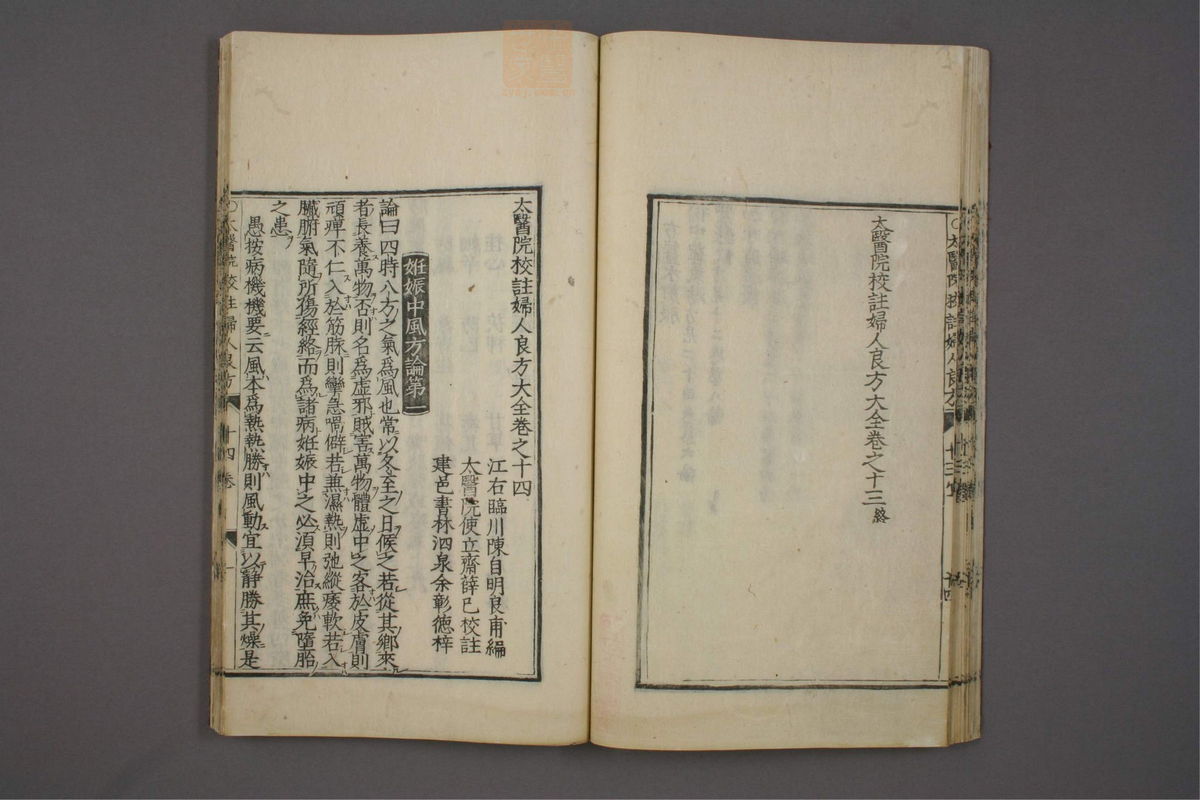 太醫院校註婦人良方大全卷之十三終
太醫院校註婦人良方大全卷之十四
江右臨川陳自明良甫編
太醫院使立齋薛已校註
建邑書林泗泉余彰德梓
妊娠中風方論第一
論曰四時八方之氣爲風也常以冬至之日候之若從其鄉來
者長養萬物否則名爲虛邪賊害萬物體虛中之客於皮膚則
頑痺不仁入於筋脉則攣急喎僻若兼濕熱則弛縱痿軟若入
臟腑氣隨所傷經絡而爲諸病妊娠中之必須早治庶免墮胎
之患
愚按病機機要云風本爲熱熱勝則風動宜以靜勝其燥是
〇太醫院校註婦人良方 十四卷 一